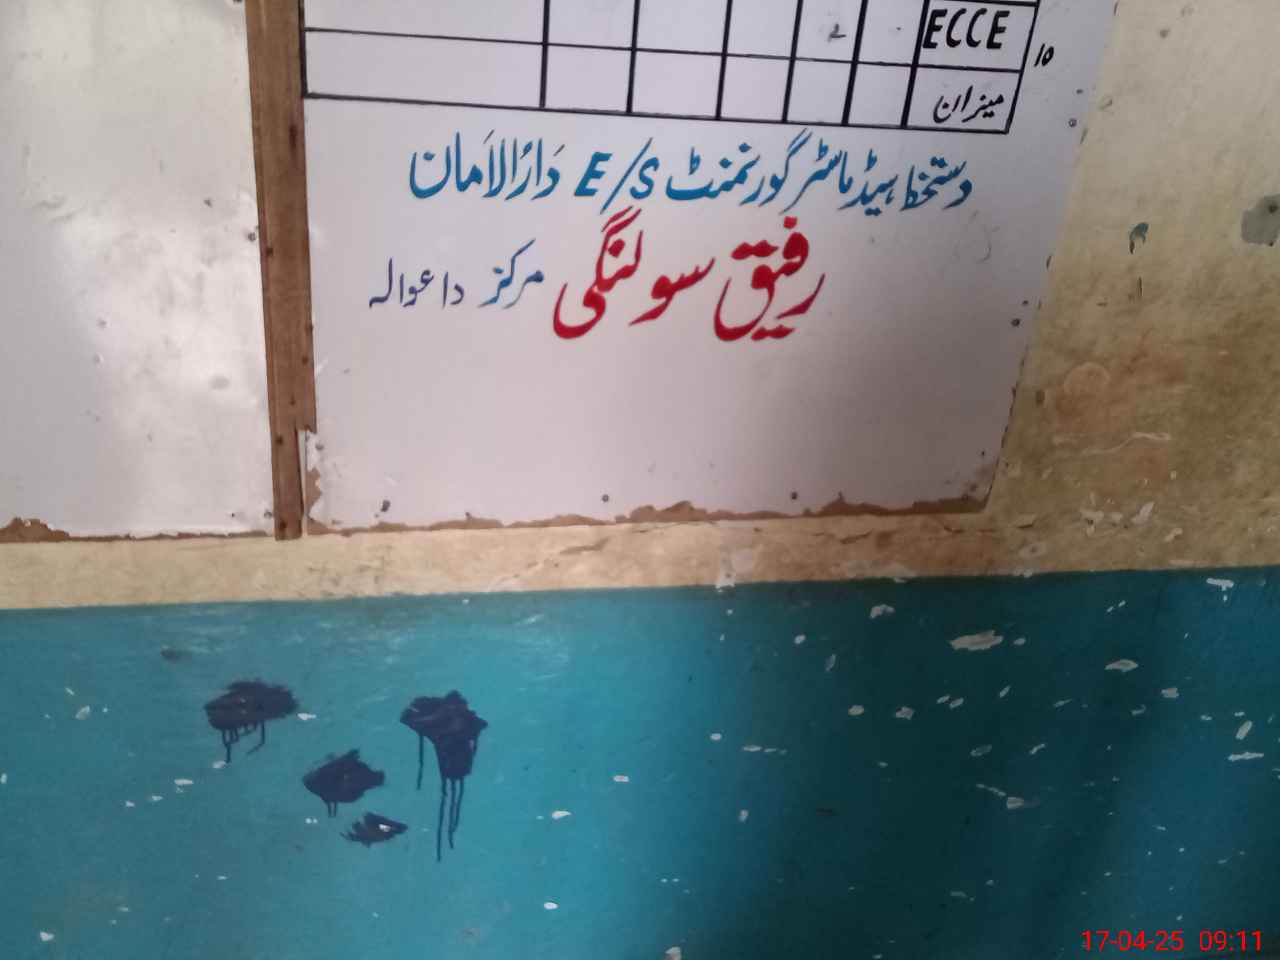 ECCE ۱۵
2
میزان
دستخط ہیڈ ماسٹر گورنمنٹ E/S دَارُالاَمان
رفیق سولنگی مرکز داعوالہ
17-04-25 09:11